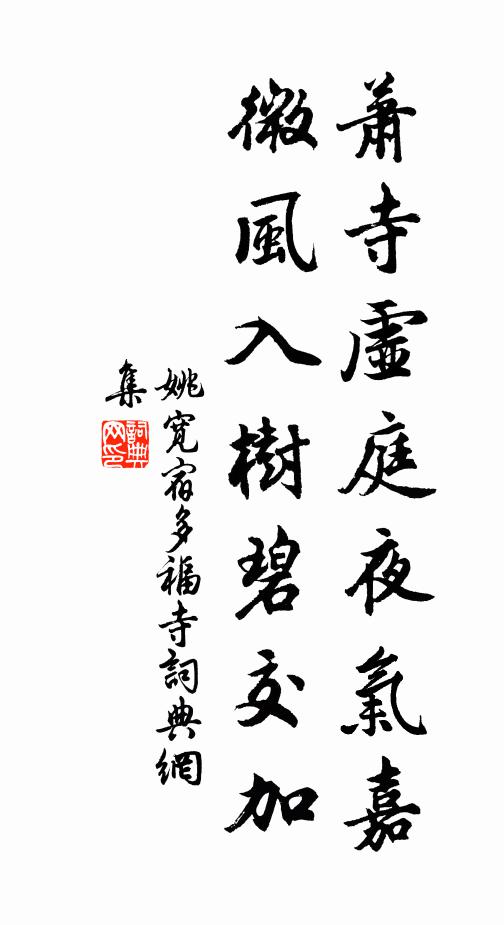 蕭寺虛庭夜氣嘉
微風入樹碧交加
姚寬宿多福寺詞典網
集
詞典
网印